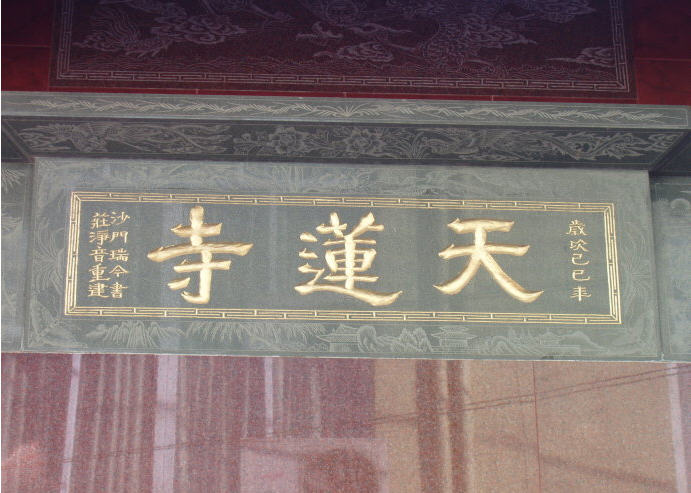 歲次己巳年
天蓮寺
沙門瑞今書
莊淨音重建